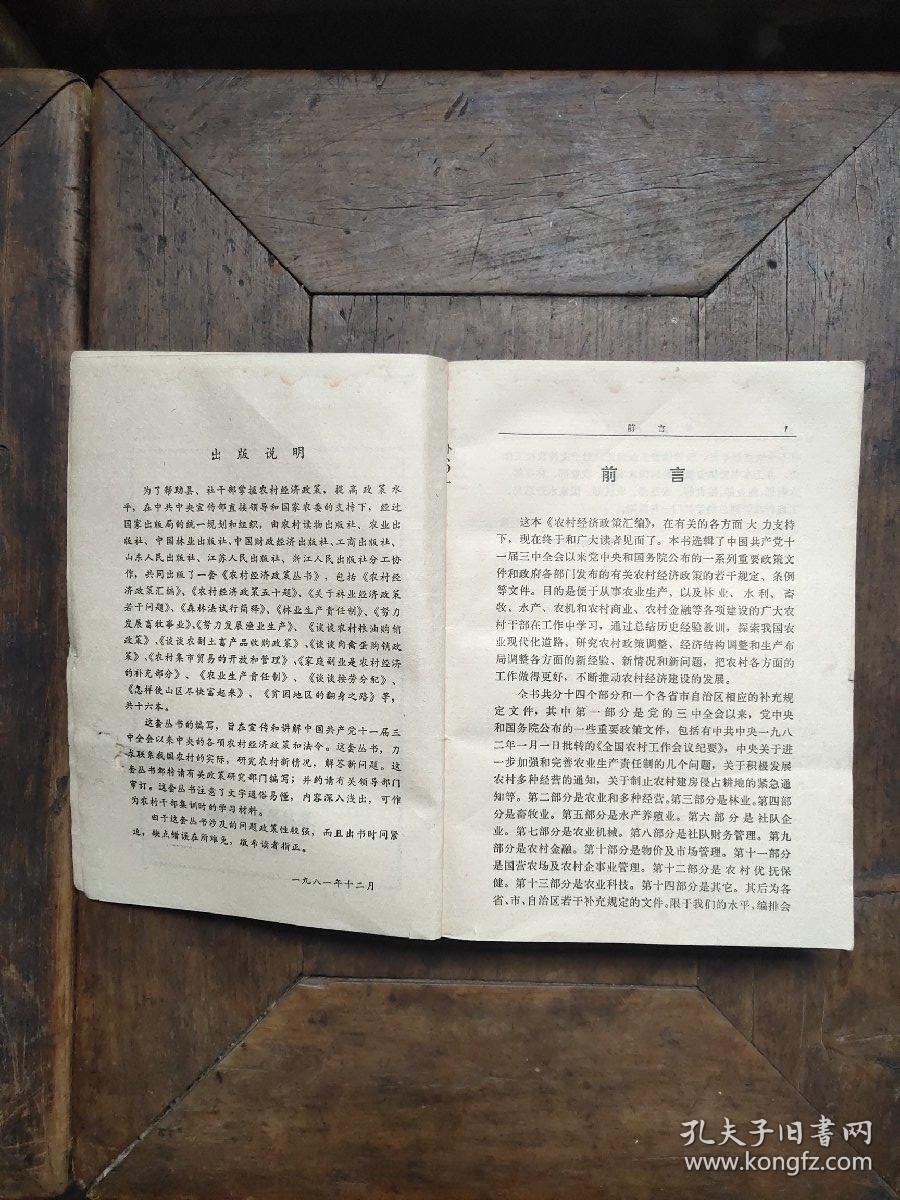 出版说明
为了帮助县、社干部掌握农村经济政策，提高政策水
平，在中共中央宣传部直接领导和国家农委的支持下，经过
国家出版局的统一规划和组织，由农村读物出版社、农业出
版社、中国林业出版社、中国财政经济出版社、工商出版社、
山东人民出版社、江苏人民出版社、浙江人民出版社分工协
作，共同出版了一套《农村经济政策丛书》，包括《农村经
济政策汇编》、《农村经济政策五十题》、《关于林业经济政策
若干问题》、《森林法试行简释》、《林业生产责任制》、《努力
发展畜牧事业》、《努力发展渔业生产》、《谈谈农村粮油购销
政策》、《谈谈农副土畜产品收购政策》、《谈谈肉禽蛋购销政
策》、《农村集市贸易的开放和管理》、《家庭副业是农村经济
的补充部分》、《农业生产责任制》、《谈谈按劳分配》、
《怎样使山区尽快富起来》、《贫困地区的翻身之路》等，
共十六本。
这套丛书的编写，旨在宣传和讲解中国共产党十一届三
中全会以来中央的各项农村经济政策和法令。这套丛书，力
求联系我国农村的实际，研究农村新情况，解答新问题。这
套丛书都特请有关政策研究部门编写；并约请有关领导部门
审订。这套丛书注意了文字通俗易懂，内容深入浅出，可作
为农村干部集训时的学习材料。
由于这套丛书涉及的问题政策性较强，而且出书时间紧
迫，缺点错误在所难免，敬希读者指正。
一九八一年十二月
前言
前言
这本《农村经济政策汇编》，在有关的各方面大力支持
下，现在终于和广大读者见面了。本书选辑了中国共产党十
一届三中全会以来党中央和国务院公布的一系列重要政策文
件和政府各部门发布的有关农村经济政策的若干规定、条例
等文件。目的是便于从事农业生产、以及林业、水利、畜
牧、水产、农机和农村商业、农村金融等各项建设的广大农
村干部在工作中学习，通过总结历史经验教训，探索我国农
业现代化道路、研究农村政策调整、经济结构调整和生产布
局调整各方面的新经验、新情况和新问题，把农村各方面的
工作做得更好，不断推动农村经济建设的发展。
全书共分十四个部分和一个各省市自治区相应的补充规
定文件，其中第一部分是党的三中全会以来，党中央
和国务院公布的一些重要政策文件，包括有中共中央一九八
二年一月一日批转的《全国农村工作会议纪要》，中央关于进
一步加强和完善农业生产责任制的几个问题，关于积极发展
农村多种经营的通知，关于制止农村建房侵占耕地的紧急通
知等。第二部分是农业和多种经营。第三部分是林业。第四部
分是畜牧业。第五部分是水产养殖业。第六部分是社队企
业。第七部分是农业机械。第八部分是社队财务管理。第九
部分是农村金融。第十部分是物价及市场管理。第十一部分
是国营农场及农村企事业管理。第十二部分是农村优抚保
健。第十三部分是农业科技。第十四部分是其它。其后为各
省、市、自治区若干补充规定的文件。限于我们的水平，编排会
孔夫子旧書网
www.kongfz.com